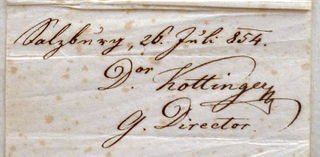 Salzburg, 26. Juli 854.
Dor Kottinger
G. Director.